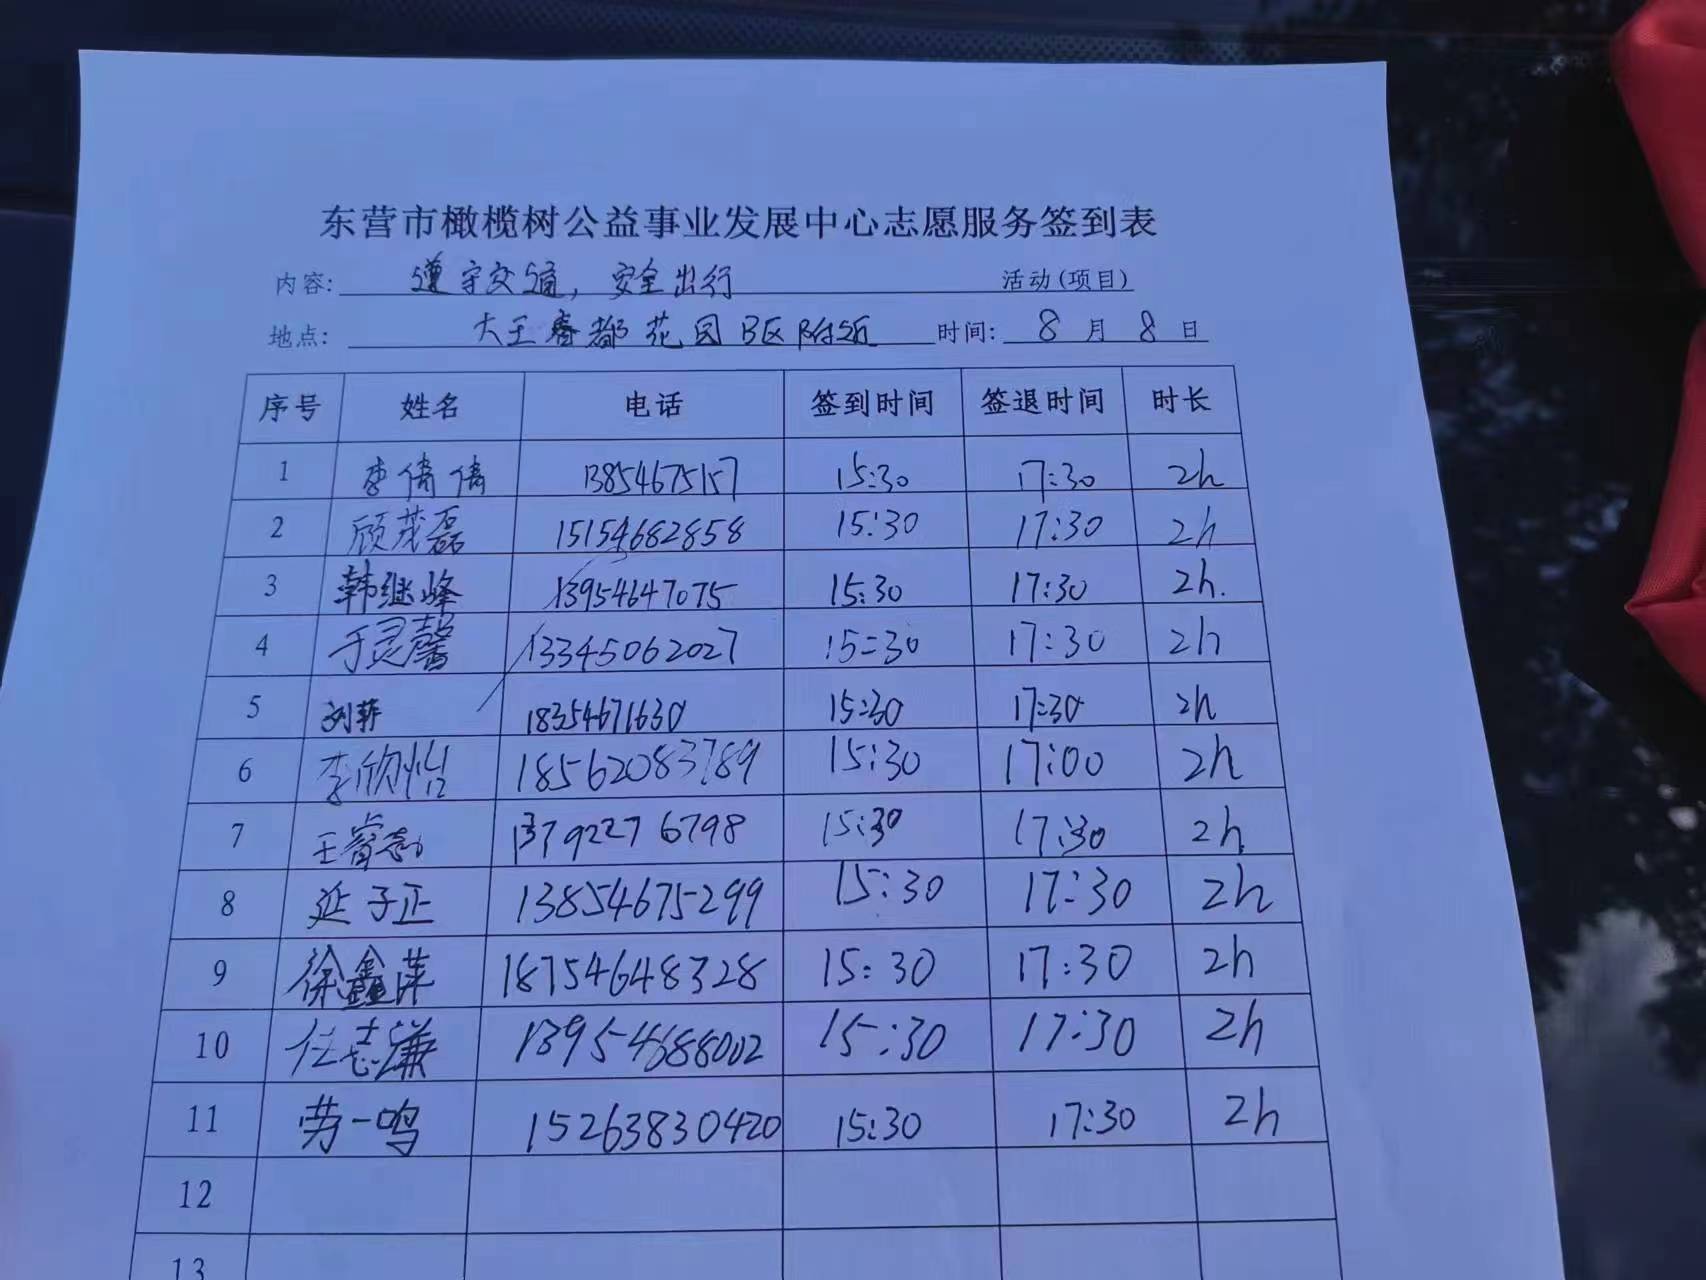 东营市橄榄树公益事业发展中心志愿服务签到表
内容: 遵守交通，安全出行 活动(项目)
地点: 大王春都花园B区附近 时间: 8 月 8 日
序号 姓名 电话 签到时间 签退时间 时长
1 李倩倩 13854675157 15:30 17:30 2h
2 顾茂磊 15154682858 15:30 17:30 2h
3 韩继峰 13954647075 15:30 17:30 2h.
4 于灵馨 13345062027 15:30 17:30 2h
5 刘菲 18354671630 15:30 17:30 2h
6 李欣怡 18562083789 15:30 17:00 2h
7 王睿 13792276798 15:30 17:30 2h
8 延子正 13854675299 15:30 17:30 2h
9 徐鑫萍 18754648328 15:30 17:30 2h
10 任志谦 13954688002 15:30 17:30 2h
11 劳一鸣 15263830420 15:30 17:30 2h
12
13